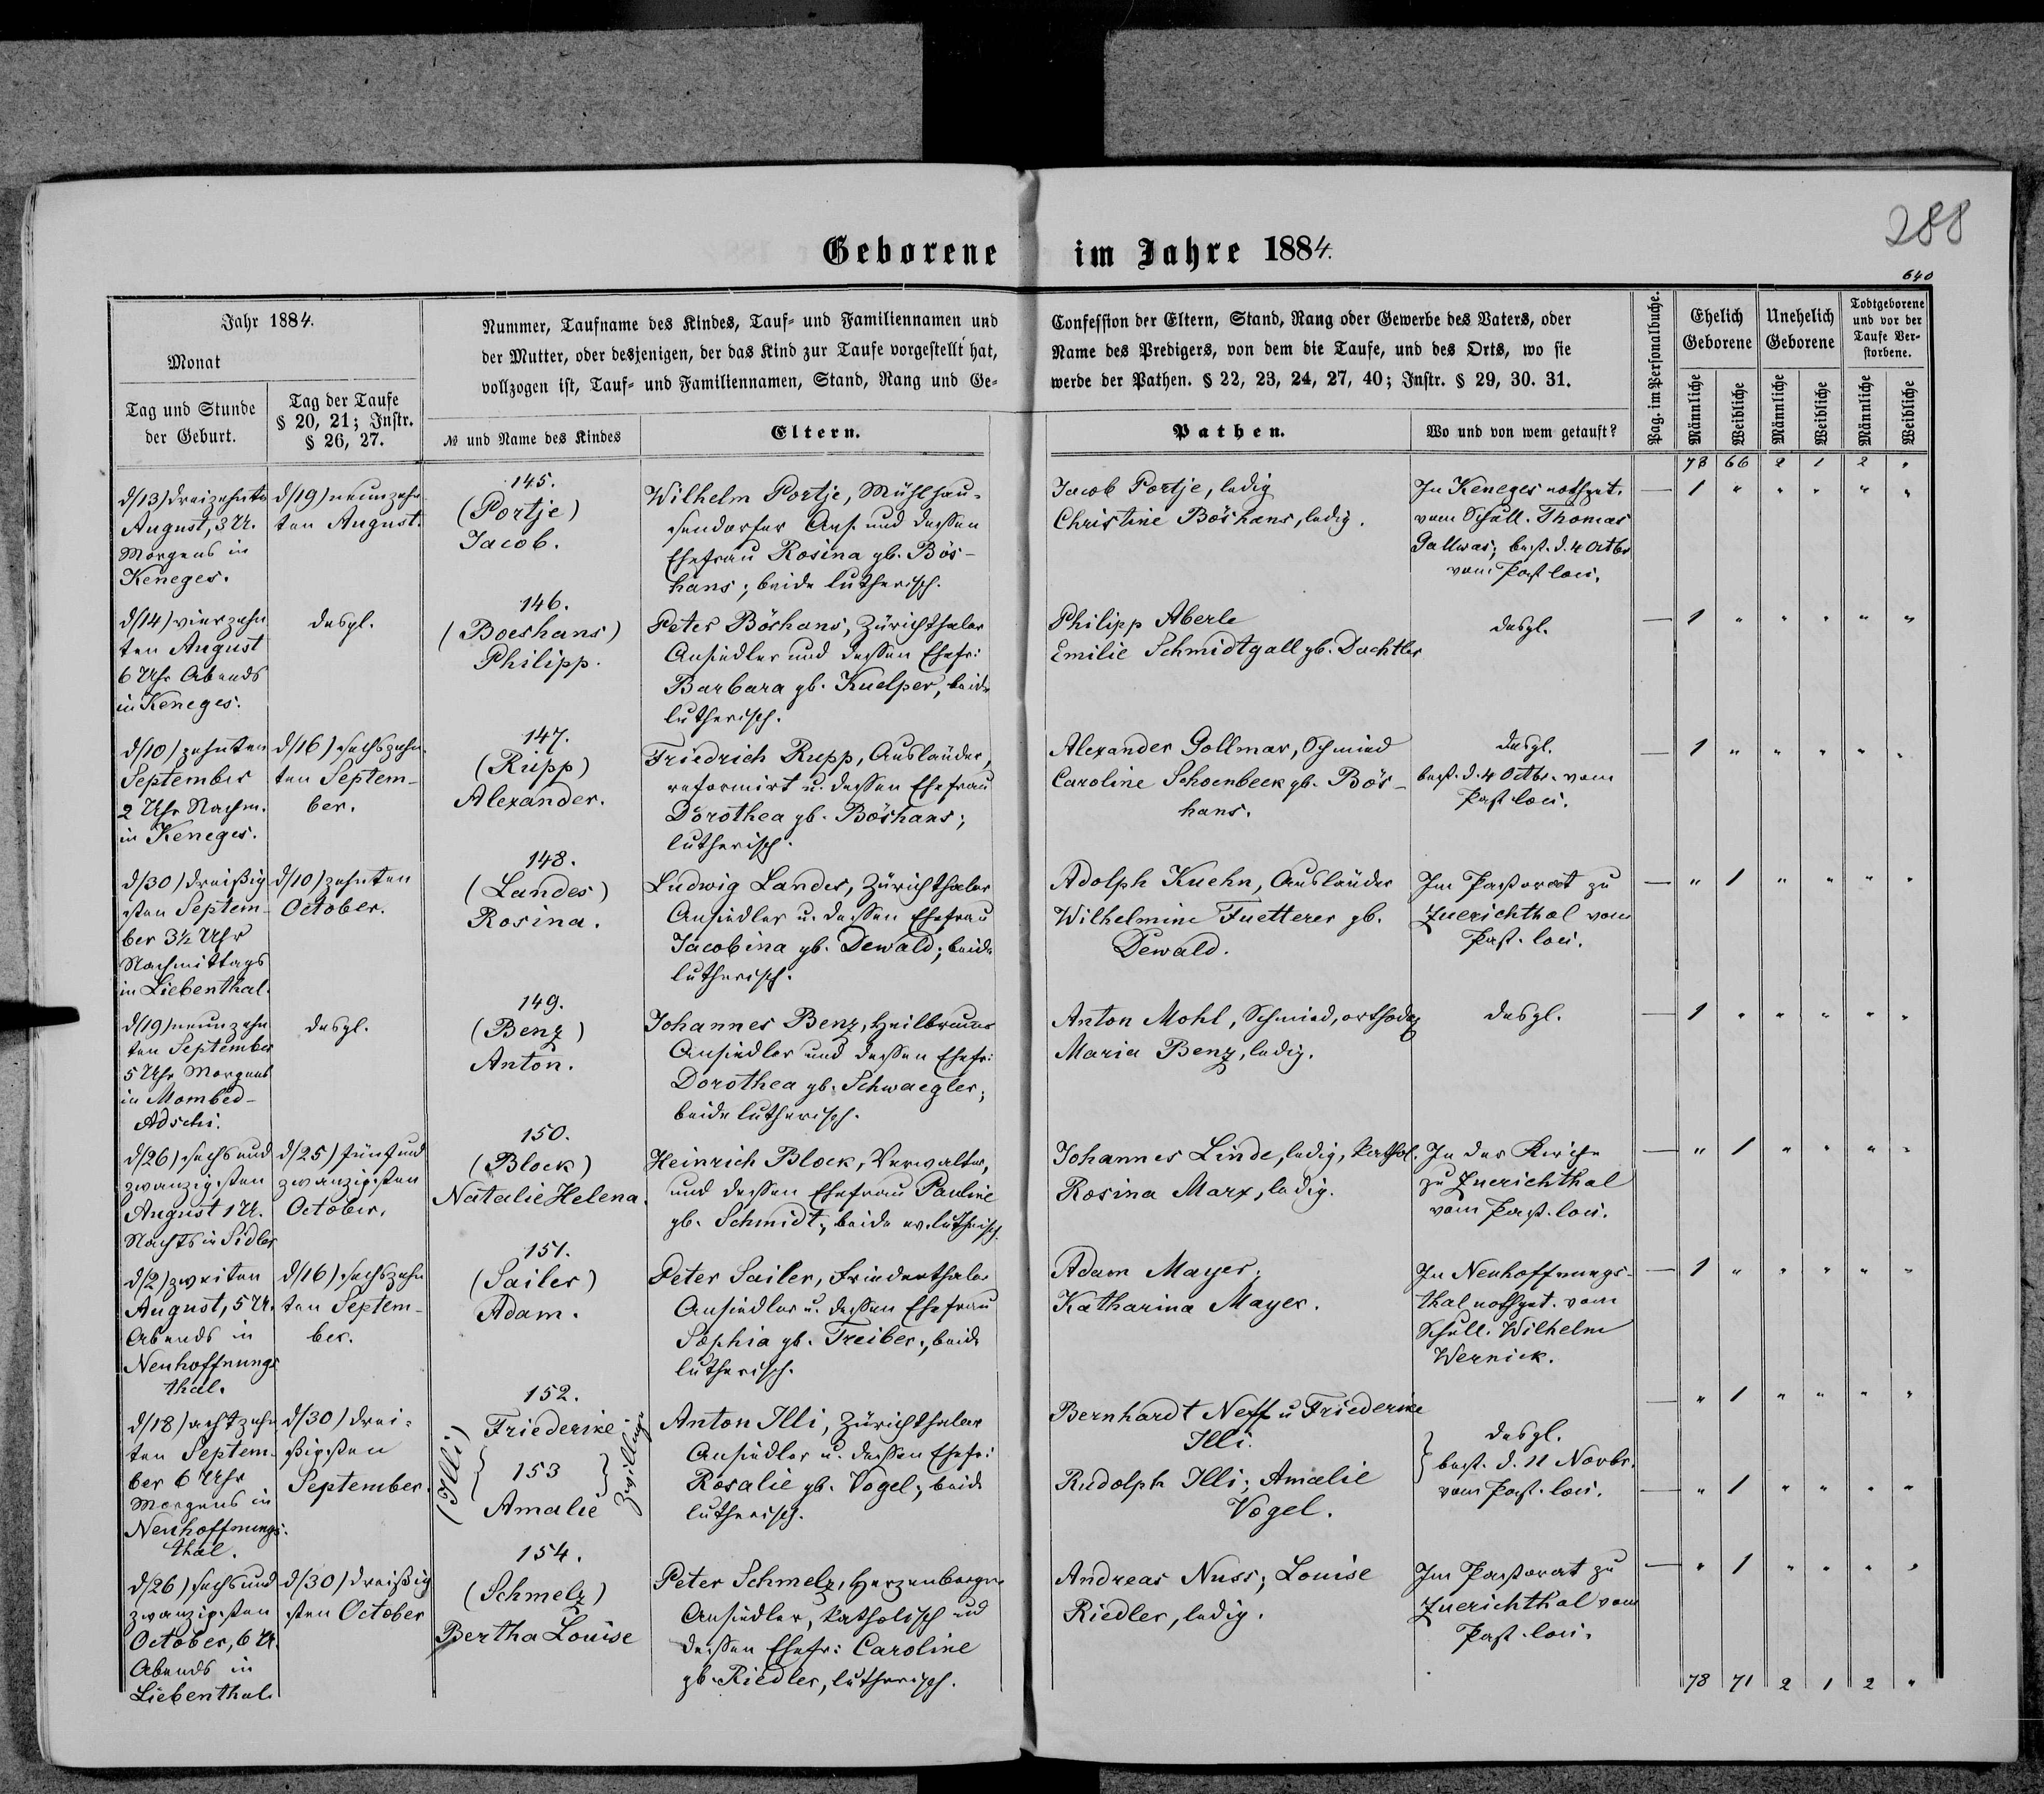 288
640
Geborene im Jahre 1884.
Jahr 1884.
Monat
Tag und Stunde
der Geburt.
Tag der Taufe
§ 20, 21; Instr.
§ 26, 27.
Nummer, Taufname des Kindes, Tauf- und Familiennamen und
der Mutter, oder desjenigen, der das Kind zur Taufe vorgestellt hat,
vollzogen ist, Tauf- und Familiennamen, Stand, Rang und Ge-
№ und Name des Kindes
Eltern.
Confession der Eltern, Stand, Rang oder Gewerbe des Vaters, oder
Name des Predigers, von dem die Taufe, und des Orts, wo sie
werde der Pathen. § 22, 23, 24, 27, 40; Instr. § 29, 30. 31.
Pathen.
Wo und von wem getauft?
Pag. im Personalbuche.
Ehelich
Geborene
Unehelich
Geborene
Todtgeborene
und vor der
Taufe Ver-
storbene.
Männliche
Weibliche
Männliche
Weibliche
Männliche
Weibliche
78 66 2 1 2 "
d/13) dreizehnten
August, 3 U.
Morgens in
Keneges.
d/19) neunzehn
ten August.
145.
(Portje)
Jacob.
Wilhelm Portje, Mühlhau-
sendorfer Ans. und dessen
Ehefrau Rosina gb. Bös-
hans; beide lutherisch.
Jacob Portje, ledig
Christine Böshans, ledig.
In Keneges nothget.
vom Schull. Thomas
Gallwas; best. d. 4 Octbr
vom Past. loci.
— 1 " " " " "
d/14) vierzehn
ten August
6 Uhr Abends
in Keneges.
desgl.
146.
(Boeshans)
Philipp.
Peter Böshans, Zürichthaler
Ansiedler und dessen Ehefr:
Barbara gb. Kuelper, beide
lutherisch.
Philipp Aberle
Emilie Schmidtgall gb. Dachtler
desgl.
— 1 " " " " "
d/10) zehnten
September
2 Uhr Nachm.
in Keneges.
d/16) sechszehn
ten Septem-
ber.
147.
(Rupp)
Alexander.
Friedrich Rupp, Ausländer,
reformirt u. dessen Ehefrau
Dorothea gb. Böshans;
lutherisch.
Alexander Gollmar, Schmied
Caroline Schoenbeck gb. Bös-
hans.
desgl.
best. d. 4 Octbr. vom
Past. loci.
— 1 " " " " "
d/30) dreißig
sten Septem-
ber 3½ Uhr
Nachmittags
in Liebenthal.
d/10) zehnten
October.
148.
(Landes)
Rosina.
Ludwig Landes, Zürichthaler
Ansiedler u. dessen Ehefrau
Jacobina gb. Dewald; beide
lutherisch.
Adolph Kuehn, Ausländer
Wilhelmine Fuetterer gb.
Dewald.
Im Pastorat zu
Zuerichthal vom
Past. loci.
— " 1 " " " "
d/19) neunzehn
ten September
5 Uhr Morgens
in Mombed-
Adschi.
desgl.
149.
(Benz)
Anton.
Johannes Benz, Heilbrunner
Ansiedler und dessen Ehefr:
Dorothea gb. Schwaegler;
beide lutherisch.
Anton Mohl, Schmied, orthodox
Maria Benz, ledig.
desgl.
— 1 " " " " "
d/26) sechs und
zwanzigsten
August 1 U.
Nachts in Sidler
d/25) fünf und
zwanzigsten
October.
150.
(Block)
Natalie Helena.
Heinrich Block, Verwalter,
und dessen Ehefrau Pauline
gb. Schmidt, beide ev. lutherisch.
Johannes Linde, ledig, kathol.
Rosina Marx, ledig.
In der Kirche
zu Zuerichthal
vom Past. loci.
— " 1 " " " "
d/2) zweiten
August, 5 U.
Abends in
Neuhoffnungs
thal.
d/16) sechszehn
ten Septem-
ber.
151.
(Sailer)
Adam.
Peter Sailer, Friedenthaler
Ansiedler u. dessen Ehefrau
Sophia gb. Treiber, beide
lutherisch.
Adam Mayer;
Katharina Mayer.
In Neuhoffnungs-
thal nothget. vom
Schull. Wilhelm
Wernick.
— 1 " " " " "
d/18) achtzehn
ten Septem-
ber 6 Uhr
Morgens in
Neuhoffnungs-
thal.
d/30) drei-
ßigsten
September.
152.
Friederike
(Illi)
153
Zwillinge
Amalie
Anton Illi, Zürichthaler
Ansiedler u. dessen Ehefr:
Rosalie gb. Vogel; beide
lutherisch.
Bernhardt Neff u Friederike
Illi.
Rudolph Illi; Amalie
Vogel.
desgl.
best. d. 11 Novbr.
vom Past. loci.
— " 1 " " " "
— " 1 " " " "
d/26) sechs und
zwanzigsten
October, 6 U.
Abends in
Liebenthal.
d/30) dreißig
sten October
154.
(Schmelz)
Bertha Louise
Peter Schmelz, Herzenberger
Ansiedler, katholisch und
dessen Ehefr: Caroline
gb. Riedler, lutherisch.
Andreas Nuss; Louise
Riedler, ledig.
Im Pastorat zu
Zuerichthal vom
Past. loci.
— " 1 " " " "
78 71 2 1 2 "